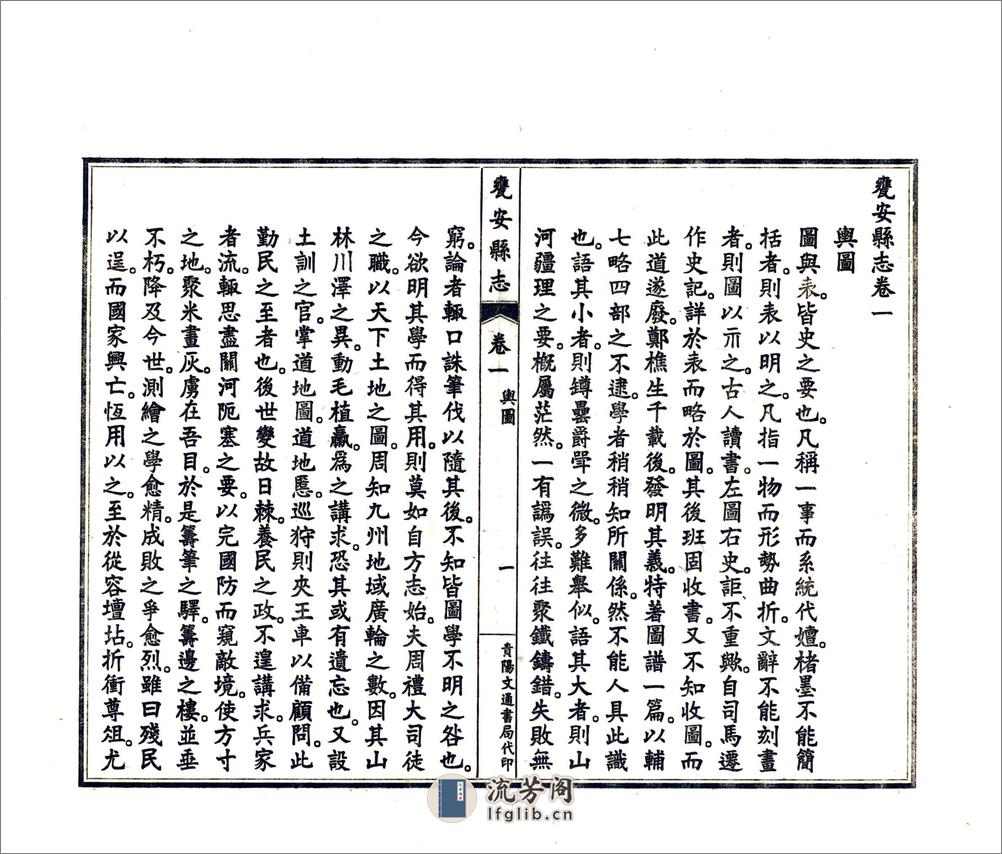 甕安縣志卷一
輿圖
圖與表。皆史之要也。凡稱一事而系統代嬗。楮墨不能簡
括者。則表以明之。凡指一物而形勢曲折。文辭不能刻畫
者。則圖以示之。古人讀書。左圖右史。詎不重歟。自司馬遷
作史記。詳於表而略於圖。其後班固收書。又不知收圖。而
此道遂廢。鄭樵生千載後。發明其義。特著圖譜一篇。以輔
七略四部之不逮。學者稍稍知所關係。然不能人具此識
也。語其小者。則罇罍爵斝之微。多難舉似。語其大者。則山
河疆理之要。槪屬茫然。一有譌誤。往往聚鐵鑄錯。失敗無
甕安縣志
卷一
輿圖
一
貴陽文通書局代印
窮。論者輒口誅筆伐以隨其後。不知皆圖學不明之咎也。
今欲明其學而得其用。則莫如自方志始。夫周禮大司徒
之職。以天下土地之圖。周知九州地域廣輪之數。因其山
林川澤之異。動毛植臝。爲之講求。恐其或有遺忘也。又設
土訓之官。掌道地圖。道地慝。巡狩則夾王車以備顧問。此
勤民之至者也。後世變故日棘。養民之政。不遑講求。兵家
者流。輒思盡關河阨塞之要。以完國防而窺敵境。使方寸
之地。聚米畫灰。虜在吾目。於是籌筆之驛。籌邊之樓。並垂
不朽。降及今世。測繪之學愈精。成敗之爭愈烈。雖曰殘民
以逞。而國家興亡。恆用以之。至於從容壇坫。折衝尊俎。尤
流芳阁
lfglib.cn